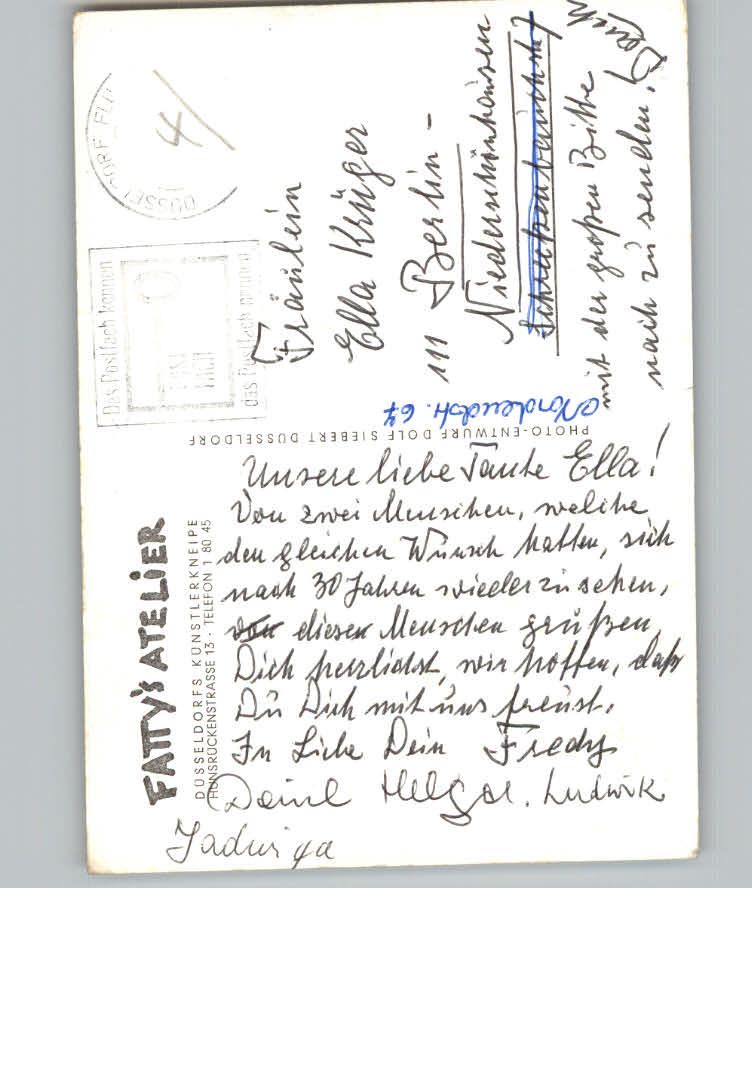 FATTY'S ATELIER
DÜSSELDORFS KÜNSTLERKNEIPE
HUNSRÜCKENSTRASSE 13 · TELEFON 1 80 45
Unsere liebe Tante Ella!
Von zwei Menschen, welche
den gleichen Wunsch hatten, sich
nach 30 Jahren wiederzusehen,
von diesen Menschen grüßen
Dich herzlichst, wir hoffen, daß
Du Dich mit uns freust.
In Liebe Dein Fredy
Deine Helga. Ludwik
Jadwiga
PHOTO-ENTWURF DOLF SIEBERT DÜSSELDORF
Das Postfach kennen
POST
FACH
das Postfach nennen
DÜSSELDORF
4/
Fräulein
Ella Krüger
111 Berlin -
Niederschönhausen
Nordendstr. 67
mit der großen Bitte
nach zu senden! Danke